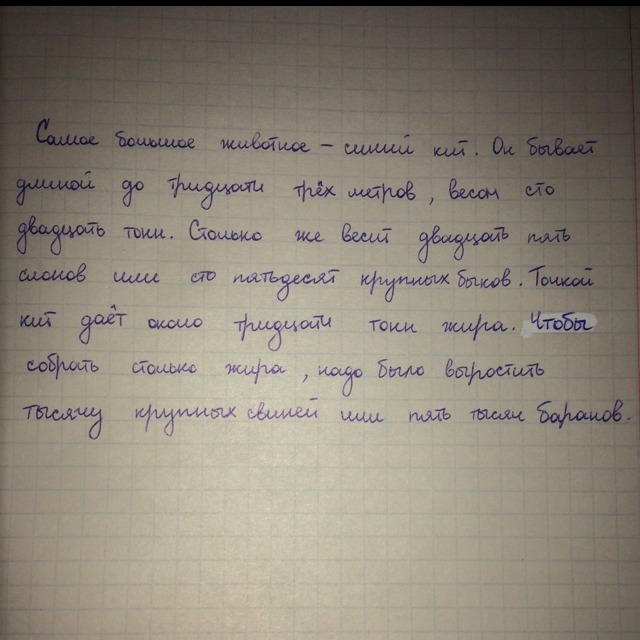 Самое большое животное – синий кит. Он бывает
длиной до тридцати трёх метров, весом сто
двадцать тонн. Столько же весит двадцать пять
слонов или сто пятьдесят крупных быков. Тонкой
кит даёт около тридцати тонн жира. Чтобы
собрать столько жира, надо было выростить
тысячу крупных свиней или пять тысяч баранов.